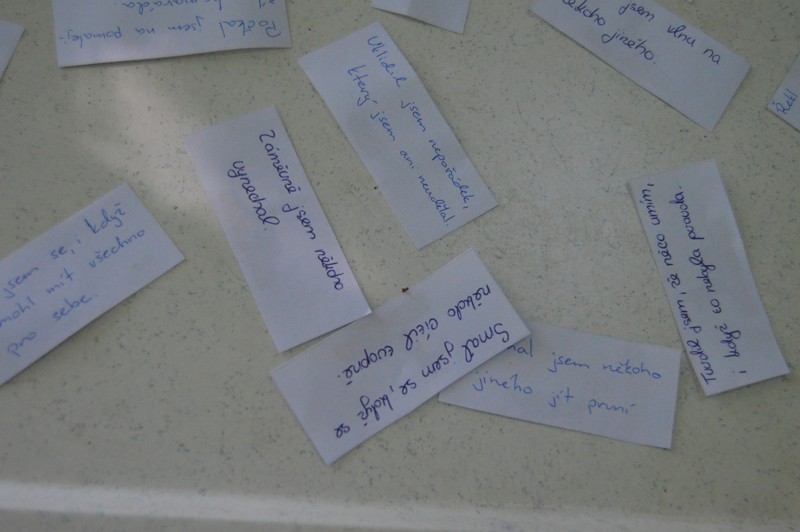 Počkal jsem na pomalej-
kamaráda.
jsem vinu na
jiného.
Uklidil jsem nepořádek,
který jsem ani neudělal.
Záměrně jsem někoho
vynechal.
jsem se, i když
mohl mít všechno
pro sebe.
Tvrdil jsem, že něco umím,
i když to nebyla pravda.
Smál jsem se, když se
někdo cítil trapně.
jsem někoho
jiného jít první
Řekl